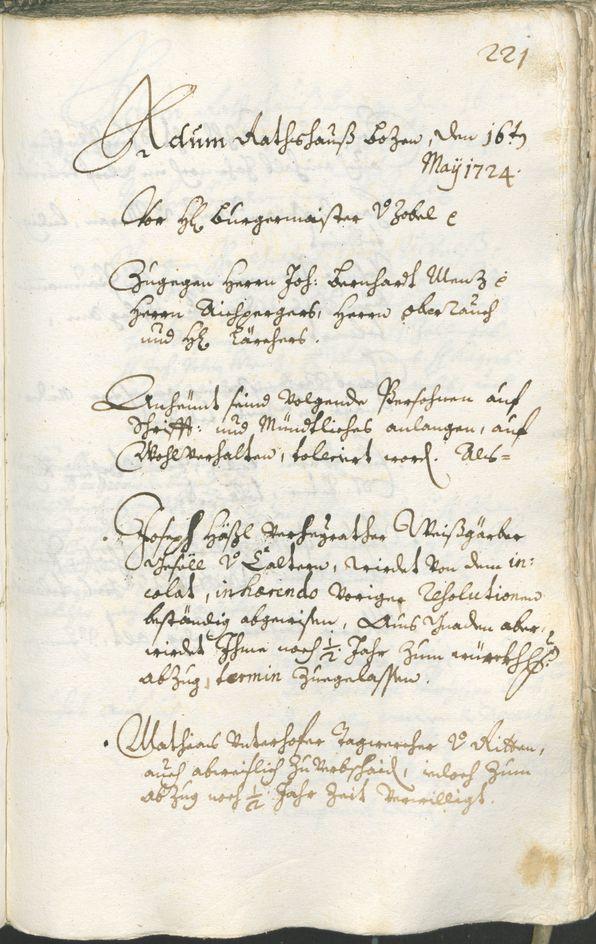 221
Actum Rathshauß Bozen, den 16tn
May 1724.
Vor H: Burgermaister v Zobel
Zugegen Herrn Joh: Bernhardt Menz
Herrn Aichpergers, Herrn oberrauch
und H: Lärchers.
Anheunt seind volgende Persohnen auf
Schrifft: und Mündtliches anlangen, auf
Wohlverhalten, toleriert word. Als=
Joseph Häßl verheyrather Weißgärber
Gesöll v Caltern, wirdet von dem in:
colat, inhaerendo voriger resolutionen
beständig abgewisen, Aus Gnaden aber,
wirdet Ihme noch 1/2 Jahr zum würckhl:
abzug, termin zuegelassen.
Mathias Unterhofer Tagwercher v Ritten,
auch abweislich zuverbschaid, iedoch zum
abzug noch 1/2 Jahr Zeit verwilligt.